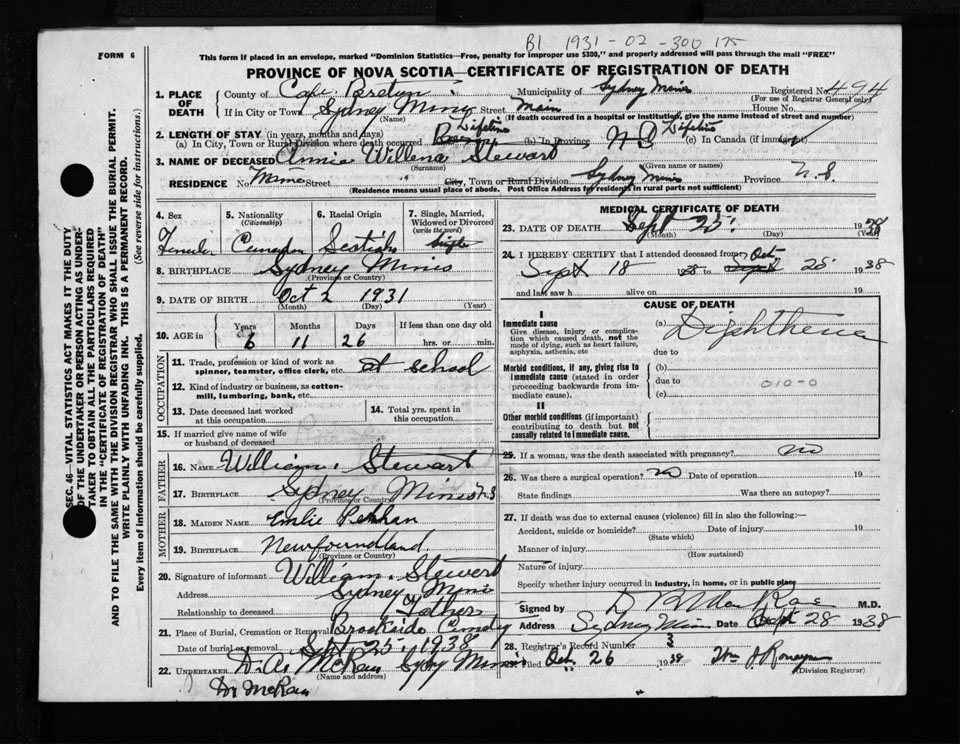 B1 1931-02-300175
FORM 6
This form if placed in an envelope, marked "Dominion Statistics—Free, penalty for improper use $300," and properly addressed will pass through the mail "FREE"
PROVINCE OF NOVA SCOTIA—CERTIFICATE OF REGISTRATION OF DEATH
1. PLACE OF DEATH
County of Cape Breton Municipality of Sydney Mines Registered No. 494
(For use of Registrar General only)
If in City or Town Sydney Mines Street Main House No.
(Name) (If death occurred in a hospital or institution, give the name instead of street and number)
2. LENGTH OF STAY (in years, months and days)
(a) In City, Town or Rural Division where death occurred Lifetime (b) In Province N S Lifetime (c) In Canada (if immigrant)
3. NAME OF DECEASED Annie Willena Stewart
(Surname) (Given name or names)
RESIDENCE No. Main Street City, Town or Rural Division Sydney Mines Province N.S.
(Residence means usual place of abode. Post Office Address for residents in rural parts not sufficient)
4. Sex Female
5. Nationality (Citizenship) Canadian
6. Racial Origin Scotish
7. Single, Married, Widowed or Divorced (write the word) Single
8. BIRTHPLACE Sydney Mines
(Province or Country)
9. DATE OF BIRTH Oct 2 1931
(Month) (Day) (Year)
10. AGE in Years 6 Months 11 Days 26 If less than one day old hrs. or min.
OCCUPATION
11. Trade, profession or kind of work as spinner, teamster, office clerk, etc. at school
12. Kind of industry or business, as cotton-mill, lumbering, bank, etc.
13. Date deceased last worked at this occupation
14. Total yrs. spent in this occupation
15. If married give name of wife or husband of deceased
FATHER
16. NAME William Stewart
17. BIRTHPLACE Sydney Mines N S
(Province or Country)
MOTHER
18. MAIDEN NAME Emlie
19. BIRTHPLACE Newfoundland
(Province or Country)
20. Signature of informant William Stewart
Address Sydney Mines
Relationship to deceased Father
21. Place of Burial, Cremation or Removal Brookside
Date of burial or removal Sept 25, 1938
22. UNDERTAKER D. A. McRae Sydney Mines
(Name and address)
Dr McRae
MEDICAL CERTIFICATE OF DEATH
23. DATE OF DEATH Sept 25 19
(Month) (Day)
24. I HEREBY CERTIFY that I attended deceased from
Sept 18 1938 to 25 1938
and last saw h alive on 19
CAUSE OF DEATH
I
Immediate cause (a) Diphtheria
Give disease, injury or complication which caused death, not the mode of dying, such as heart failure, asphyxia, asthenia, etc
due to
Morbid conditions, if any, giving rise to immediate cause (stated in order proceeding backwards from immediate cause).
(b)
due to 010-0
(c)
II
Other morbid conditions (if important) contributing to death but not causally related to immediate cause.
25. If a woman, was the death associated with pregnancy? no
26. Was there a surgical operation? no Date of operation 19
State findings Was there an autopsy?
27. If death was due to external causes (violence) fill in also the following:—
Accident, suicide or homicide? Date of injury 19
(State which)
Manner of injury
(How sustained)
Nature of injury
Specify whether injury occurred in industry, in home, or in public place
Signed by M.D.
Address Sydney Mines Date Sept 28 1938
28. Registrar's Record Number 3
Filed Oct. 26 1938
(Division Registrar)
SEC. 46—VITAL STATISTICS ACT MAKES IT THE DUTY
OF THE UNDERTAKER OR PERSON ACTING AS UNDERTAKER TO OBTAIN ALL THE PARTICULARS REQUIRED
IN THE "CERTIFICATE OF REGISTRATION OF DEATH"
AND TO FILE THE SAME WITH THE DIVISION REGISTRAR WHO SHALL ISSUE THE BURIAL PERMIT.
WRITE PLAINLY WITH UNFADING INK. THIS IS A PERMANENT RECORD.
Every item of information should be carefully supplied. (See reverse side for instructions.)